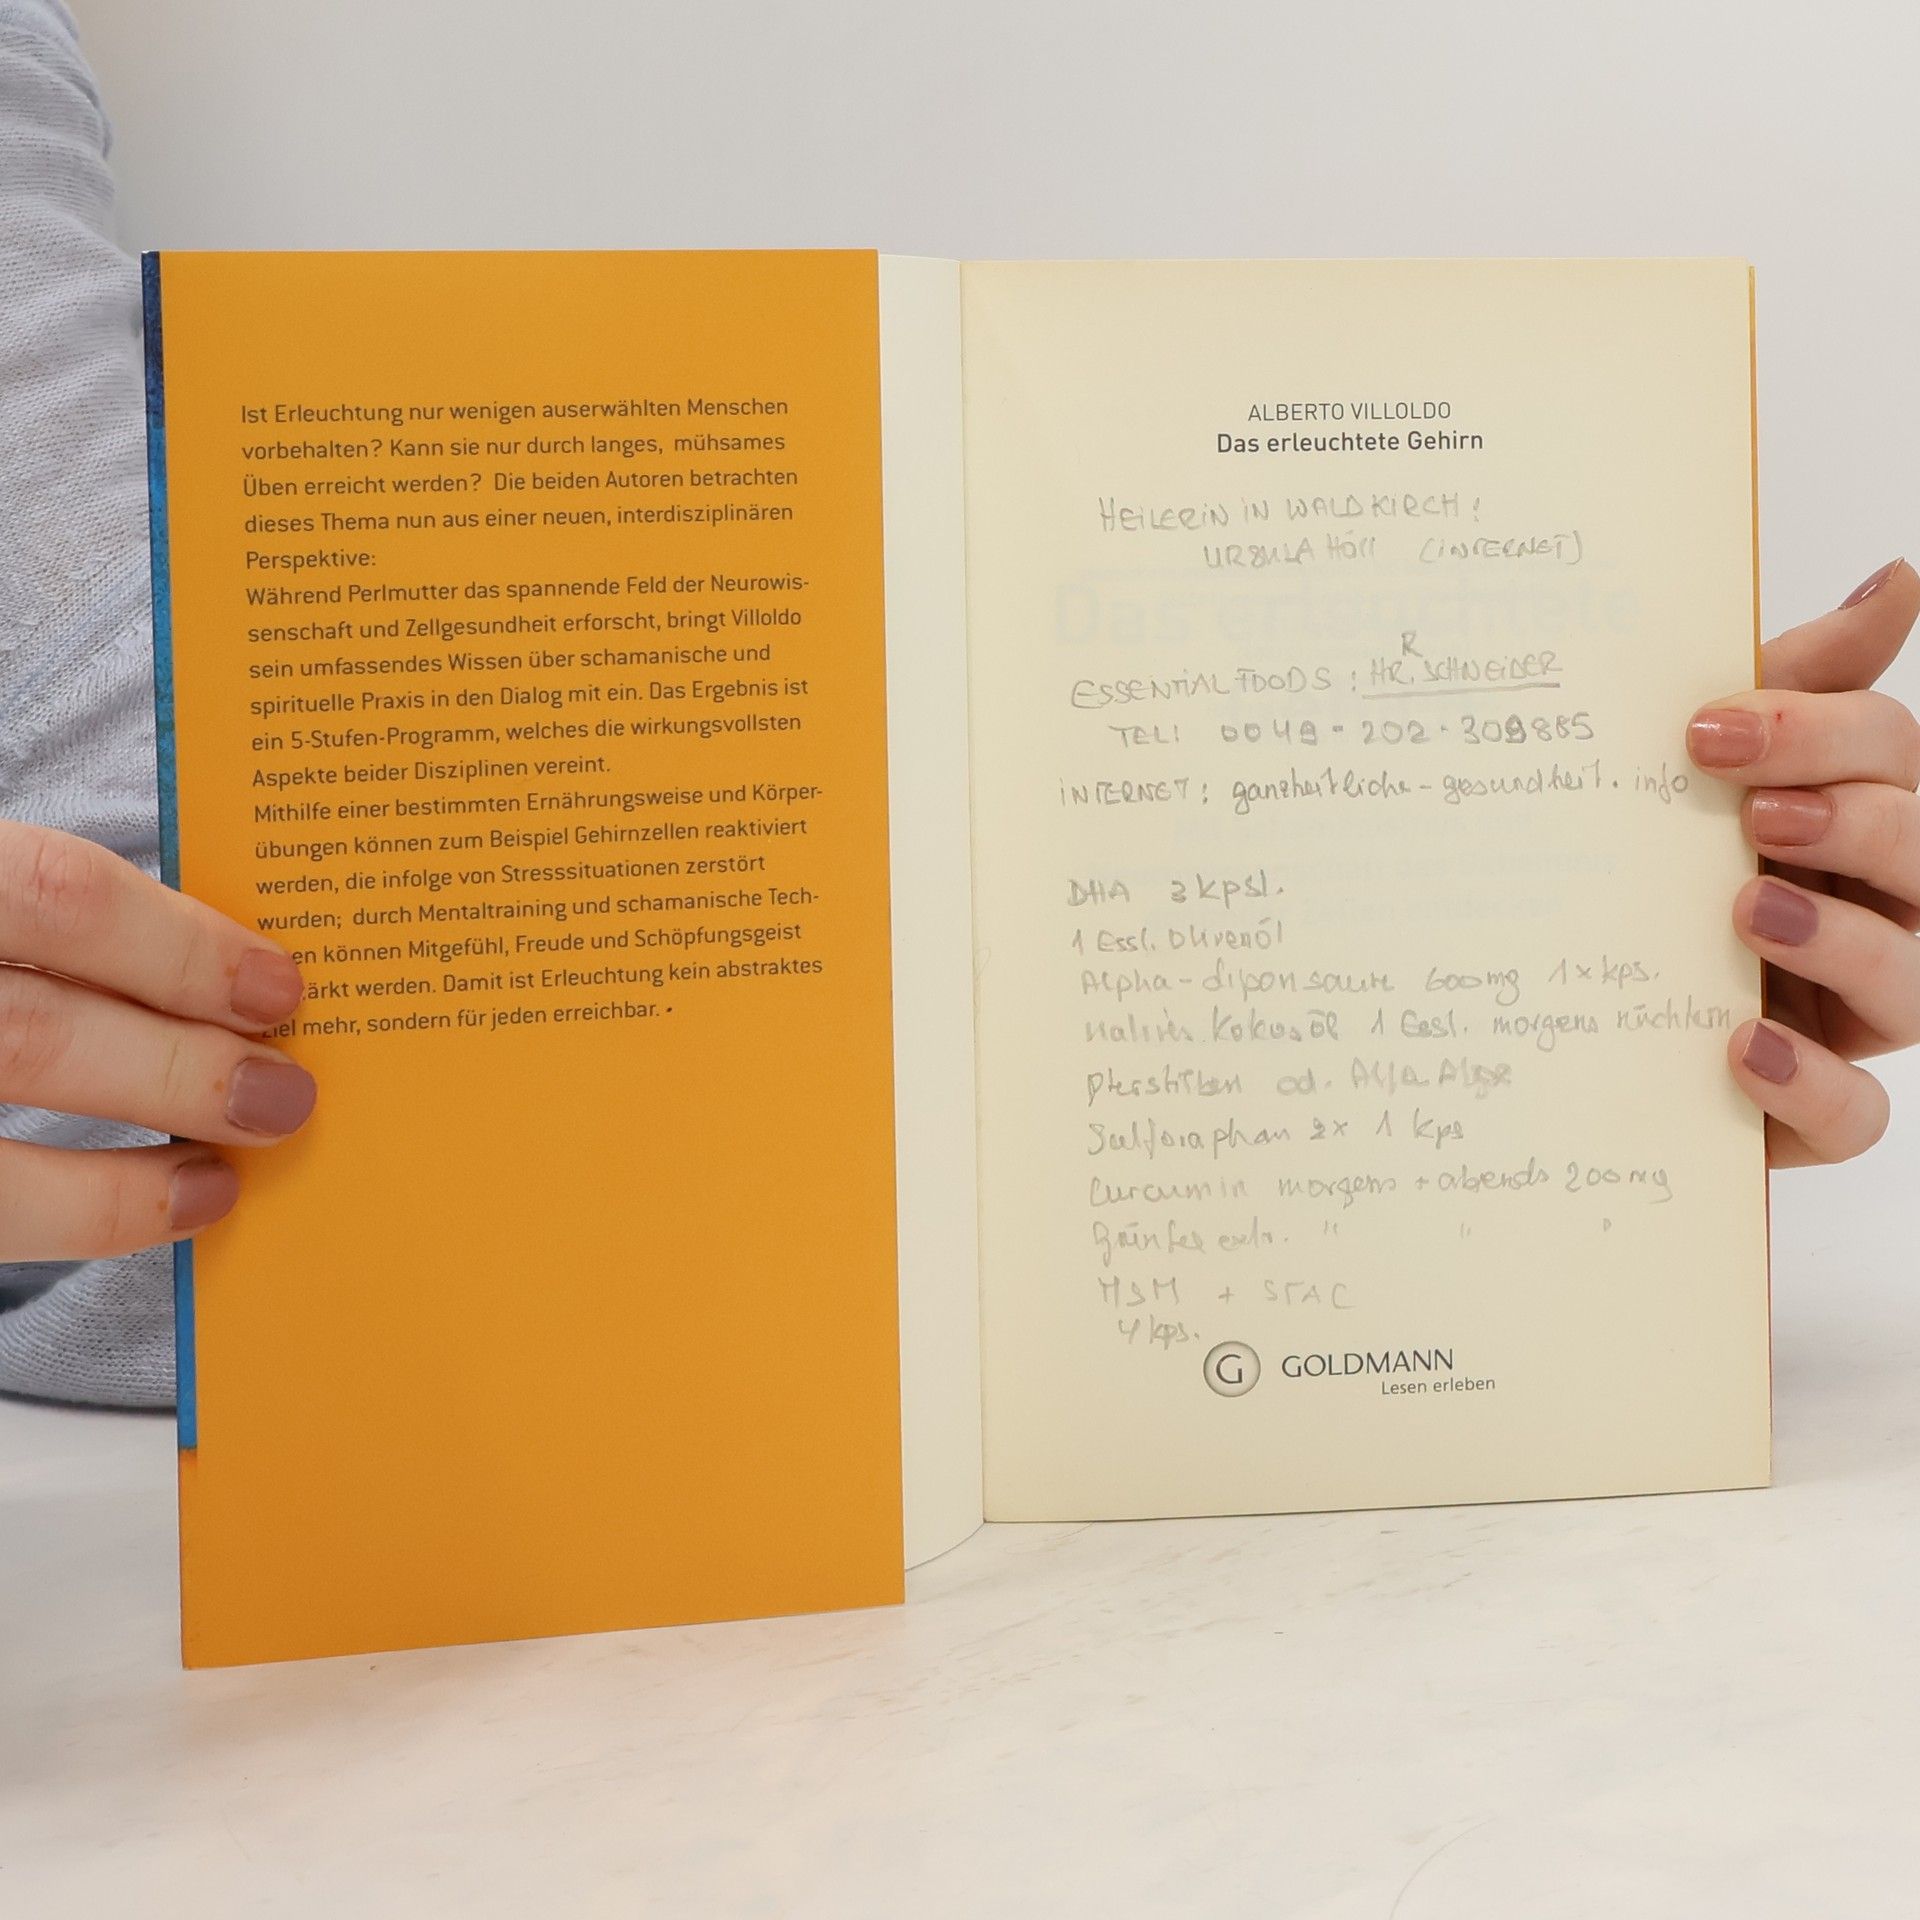 Ist Erleuchtung nur wenigen auserwählten Menschen
vorbehalten? Kann sie nur durch langes, mühsames
Üben erreicht werden? Die beiden Autoren betrachten
dieses Thema nun aus einer neuen, interdisziplinären
Perspektive:
Während Perlmutter das spannende Feld der Neurowis-
senschaft und Zellgesundheit erforscht, bringt Villoldo
sein umfassendes Wissen über schamanische und
spirituelle Praxis in den Dialog mit ein. Das Ergebnis ist
ein 5-Stufen-Programm, welches die wirkungsvollsten
Aspekte beider Disziplinen vereint.
Mithilfe einer bestimmten Ernährungsweise und Körper-
übungen können zum Beispiel Gehirnzellen reaktiviert
werden, die infolge von Stresssituationen zerstört
wurden; durch Mentaltraining und schamanische Tech-
en können Mitgefühl, Freude und Schöpfungsgeist
ärkt werden. Damit ist Erleuchtung kein abstraktes
Ziel mehr, sondern für jeden erreichbar. •
ALBERTO VILLOLDO
Das erleuchtete Gehirn
HEILERIN IN WALDKIRCH!
URSULA (INTERNET)
R
ESSENTIAL FOODS: HR. SCHNEIDER
TEL: 0049 - 202 - 309885
INTERNET: ganzheitliche-gesundheit.info
DHA 3 kpsl.
1 Essl. Olivenöl
Alpha-liponsäure 600mg 1x kps.
natives Kokosöl 1 Essl. morgens nüchtern
Pterostilben od.
Sulforaphan 2x 1 kps
Curcumin morgens + abends 200mg
Grüntee extr. " " "
MSM + STAC
4 kps.
G GOLDMANN
Lesen erleben